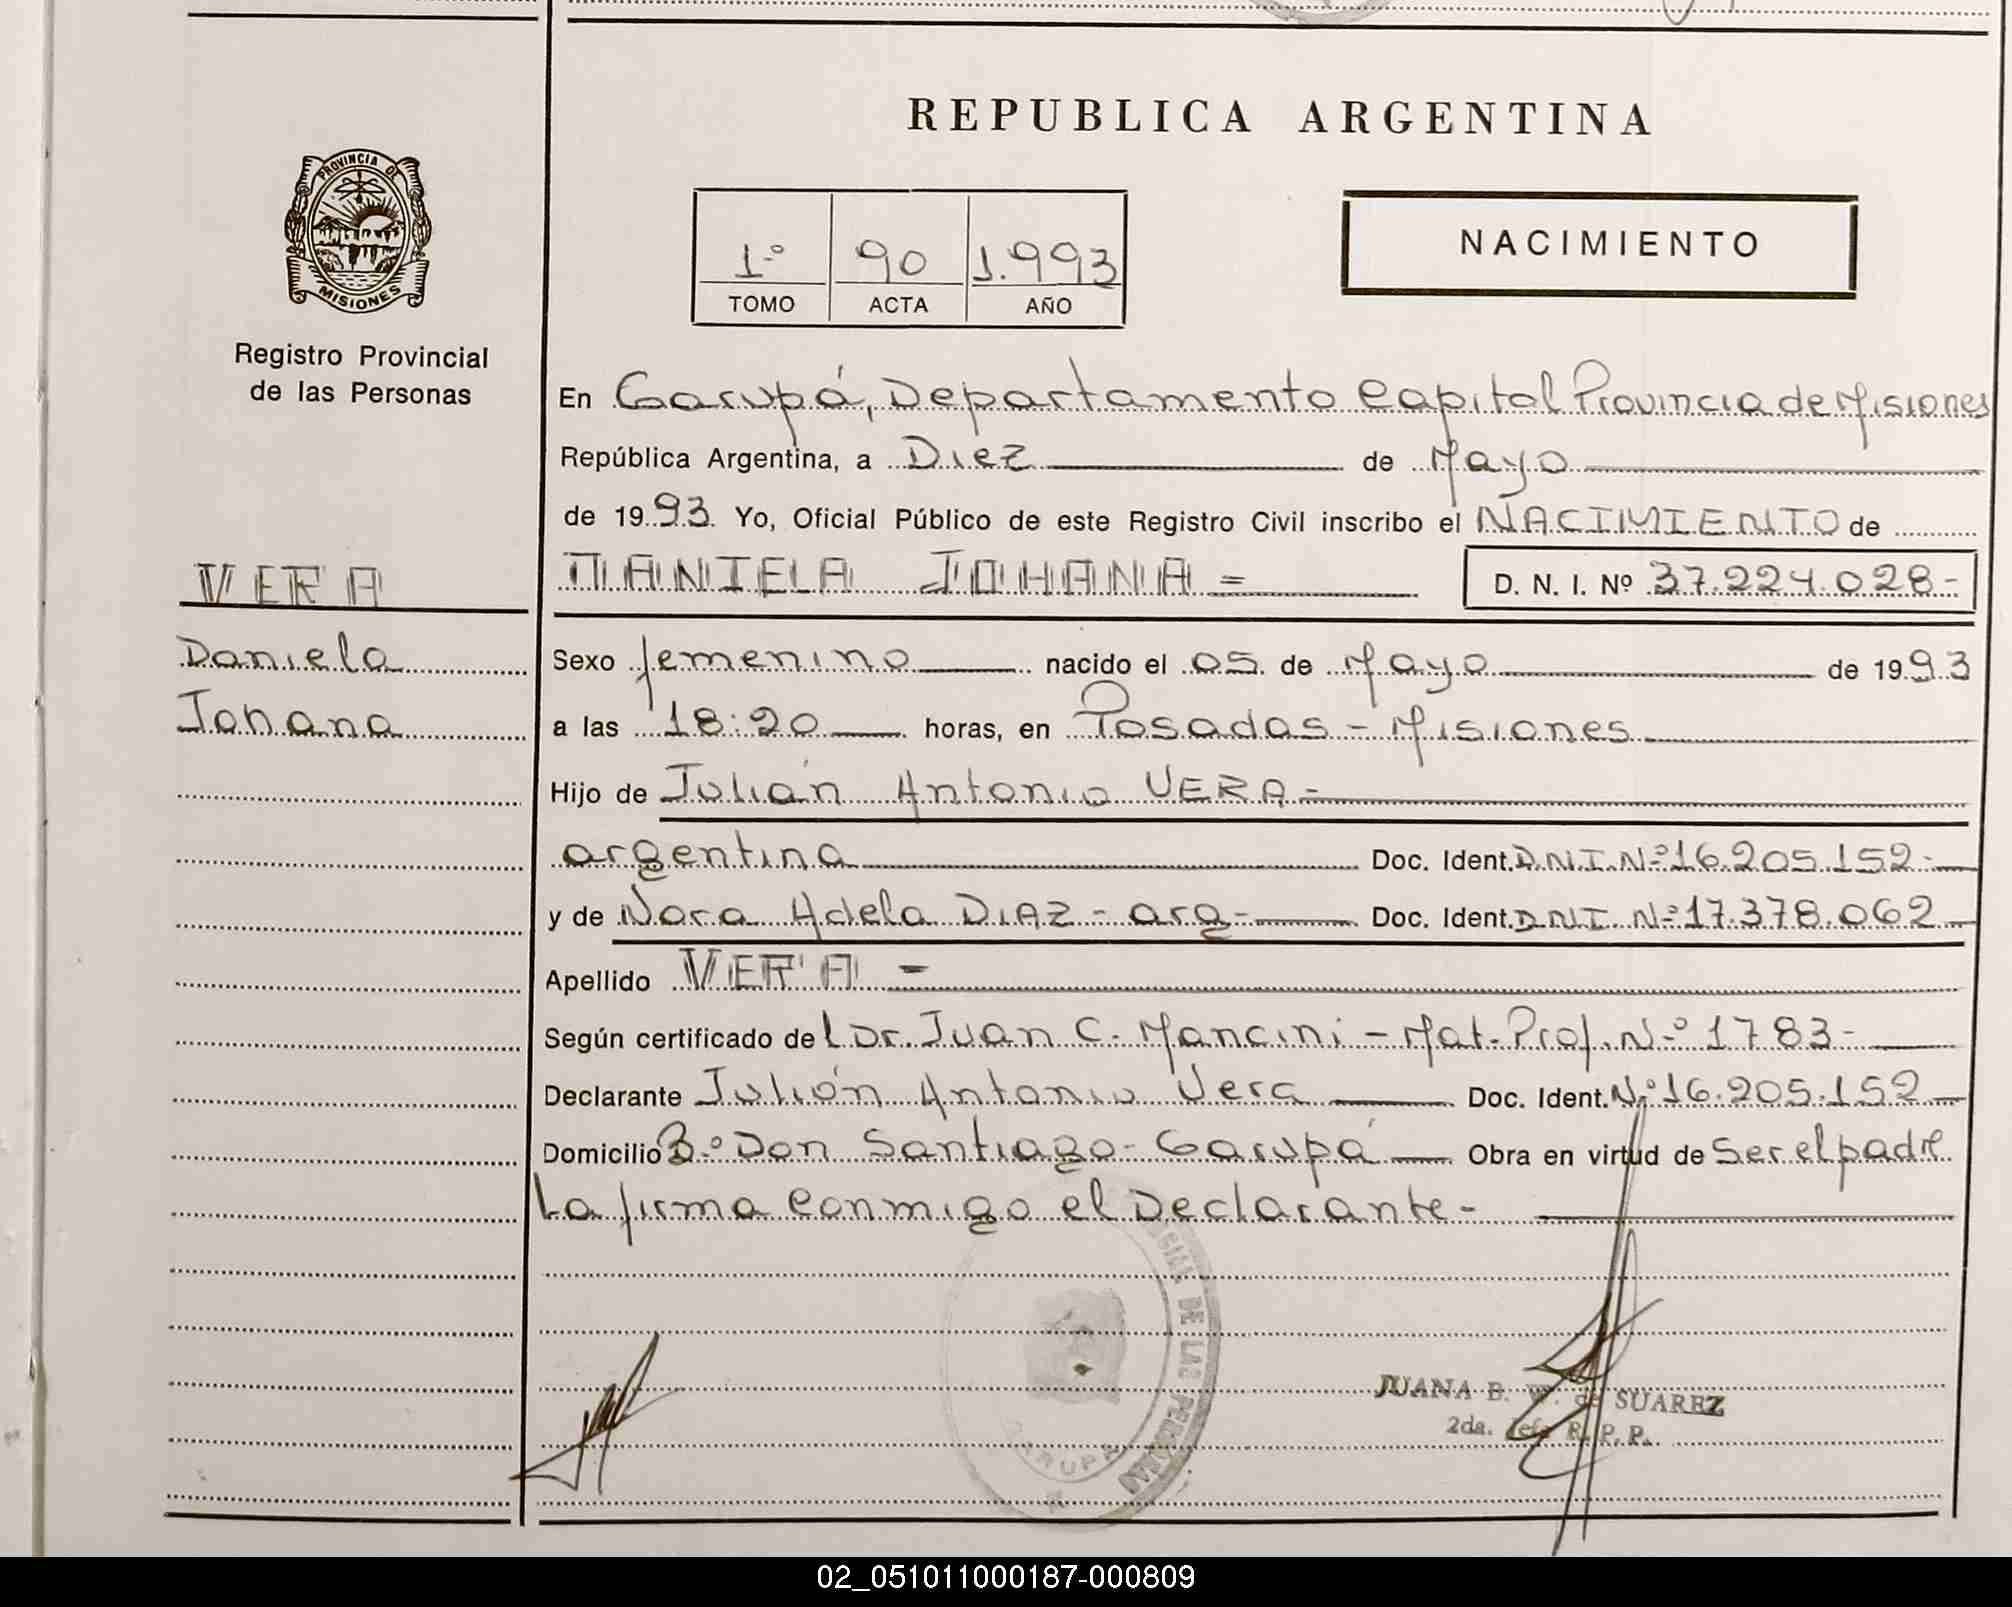 REPUBLICA ARGENTINA
PROVINCIA DE
MISIONES
Registro Provincial
de las Personas
1º 90 1.993
TOMO ACTA AÑO
NACIMIENTO
En Garupá, Departamento Capital Provincia de Misiones
República Argentina, a Diez de Mayo
de 1993 Yo, Oficial Público de este Registro Civil inscribo el NACIMIENTO de
VERA
DANIELA JOHANA = D. N. I. Nº 37.224.028-
Daniela
Johana
Sexo femenino nacido el 05 de Mayo de 1993
a las 18:20 horas, en Posadas - Misiones
Hijo de Julián Antonio VERA-
argentina Doc. Ident. D.N.I. Nº 16.205.152-
y de Nora Adela DIAZ - arg- Doc. Ident. DNI Nº 17.378.062
Apellido VERA -
Según certificado del Dr. Juan C. Mancini - Mat. Prof. Nº 1783-
Declarante Julián Antonio Vera Doc. Ident. Nº 16.205.152
Domicilio Bº Don Santiago - Garupá Obra en virtud de Ser el padre
La firma conmigo el Declarante-
DE LAS PERSONAS
GARUPA
JUANA B. W. de SUAREZ
2da. Jefe R. P. P.
02_051011000187-000809